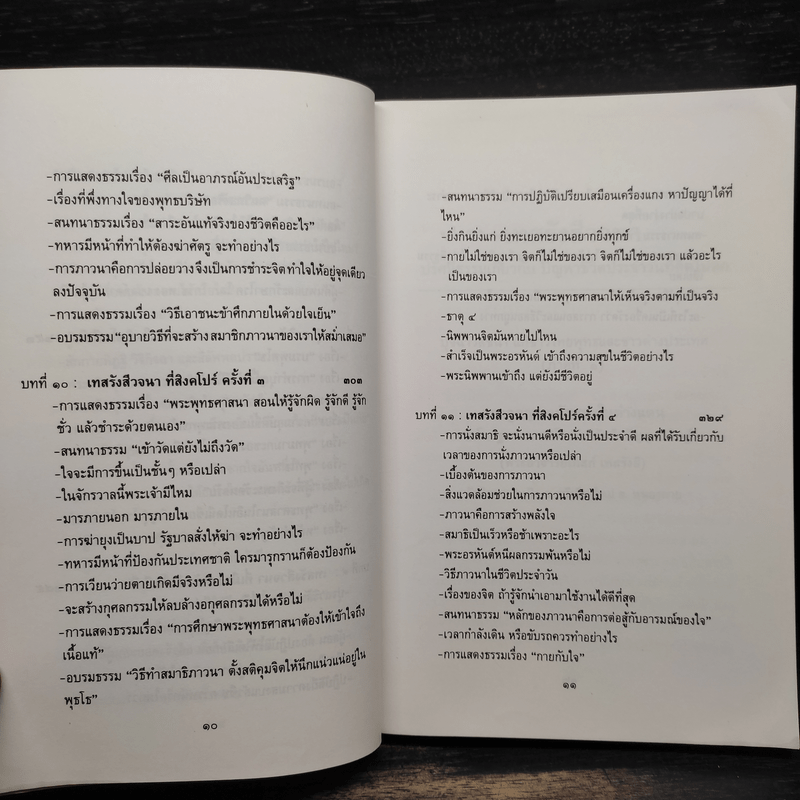 -การแสดงธรรมเรื่อง “ศีลเป็นอาภรณ์อันประเสริฐ”
-เรื่องที่พึ่งทางใจของพุทธบริษัท
-สนทนาธรรมเรื่อง “สาระอันแท้จริงของชีวิตคืออะไร”
-ทหารมีหน้าที่ทำให้ต้องฆ่าศัตรู จะทำอย่างไร
-การภาวนาคือการปล่อยวาง จึงเป็นการชำระจิต ทำใจให้อยู่จุดเดียว
ลงปัจจุบัน
-การแสดงธรรมเรื่อง “วิธีเอาชนะข้าศึกภายในด้วยใจเย็น”
-อบรมธรรม “อุบายวิธีที่จะสร้างสมาชิกภาวนาของเราให้สม่ำเสมอ”
บทที่ ๑๐ : เทสรังสีวจนา ที่สิงคโปร์ ครั้งที่ ๓ ๓๐๓
-การแสดงธรรมเรื่อง “พระพุทธศาสนา สอนให้รู้จักผิด รู้จักดี รู้จัก
ชั่ว แล้วชำระด้วยตนเอง”
-สนทนาธรรม “เข้าวัดแต่ยังไม่ถึงวัด”
-ใจจะมีการขึ้นเป็นชั้นๆ หรือเปล่า
-ในจักรวาลนี้พระเจ้ามีไหม
-มารภายนอก มารภายใน
-การฆ่ายุงเป็นบาป รัฐบาลสั่งให้ฆ่า จะทำอย่างไร
-ทหารมีหน้าที่ป้องกันประเทศชาติ ใครมารุกรานก็ต้องป้องกัน
-การเวียนว่ายตายเกิดมีจริงหรือไม่
-จะสร้างกุศลกรรมให้ลบล้างอกุศลกรรมได้หรือไม่
-การแสดงธรรมเรื่อง “การศึกษาพระพุทธศาสนาต้องให้เข้าใจถึง
เนื้อแท้”
-อบรมธรรม “วิธีทำสมาธิภาวนา ตั้งสติคุมจิตให้นึกแน่วแน่อยู่ใน
พุธโธ”
๑๐
-สนทนาธรรม “การปฏิบัติเปรียบเสมือนเครื่องแกง หาปัญญาได้ที่
ไหน”
-ยิ่งกินยิ่งแก่ ยิ่งทะเยอทะยานอยากยิ่งทุกข์
-กายไม่ใช่ของเรา จิตก็ไม่ใช่ของเรา จิตก็ไม่ใช่ของเรา แล้วอะไร
เป็นของเรา
-การแสดงธรรมเรื่อง “พระพุทธศาสนาให้เห็นจริงตามที่เป็นจริง
-ธาตุ ๔
-นิพพานจิตมันหายไปไหน
-สำเร็จเป็นพระอรหันต์ เข้าถึงความสุขในชีวิตอย่างไร
-พระนิพพานเข้าถึง แต่ยังมีชีวิตอยู่
บทที่ ๑๑ : เทสรังสีวจนา ที่สิงคโปร์ครั้งที่ ๔ ๓๒๙
-การนั่งสมาธิ จะนั่งนานดีหรือนั่งเป็นประจำดี ผลที่ได้รับเกี่ยวกับ
เวลาของการนั่งภาวนาหรือเปล่า
-เบื้องต้นของการภาวนา
-สิ่งแวดล้อมช่วยในการภาวนาหรือไม่
-ภาวนาคือการสร้างพลังใจ
-สมาธิเป็นเร็วหรือช้าเพราะอะไร
-พระอรหันต์หนีผลกรรมพ้นหรือไม่
-วิธีภาวนาในชีวิตประจำวัน
-เรื่องของจิต ถ้ารู้จักนำเอามาใช้งานได้ดีที่สุด
-สนทนาธรรม “หลักของภาวนาคือการต่อสู้กับอารมณ์ของใจ”
-เวลากำลังเดิน หรือขับรถควรทำอย่างไร
-การแสดงธรรมเรื่อง “กายกับใจ”
๑๑